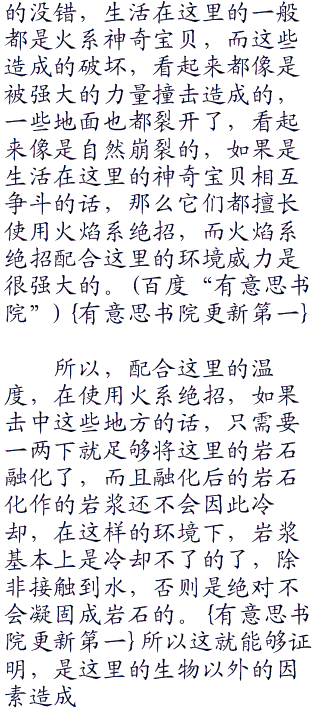 的没错，生活在这里的一般
都是火系神奇宝贝，而这些
造成的破坏，看起来都像是
被强大的力量撞击造成的，
一些地面也都裂开了，看起
来像是自然崩裂的，如果是
生活在这里的神奇宝贝相互
争斗的话，那么它们都擅长
使用火焰系绝招，而火焰系
绝招配合这里的环境威力是
很强大的。(百度“有意思书
院”){有意思书院更新第一}
所以，配合这里的温
度，在使用火系绝招，如果
击中这些地方的话，只需要
一两下就足够将这里的岩石
融化了，而且融化后的岩石
化作的岩浆还不会因此冷
却，在这样的环境下，岩浆
基本上是冷却不了的了，除
非接触到水，否则是绝对不
会凝固成岩石的。{有意思书
院更新第一}所以这就能够证
明，是这里的生物以外的因
素造成